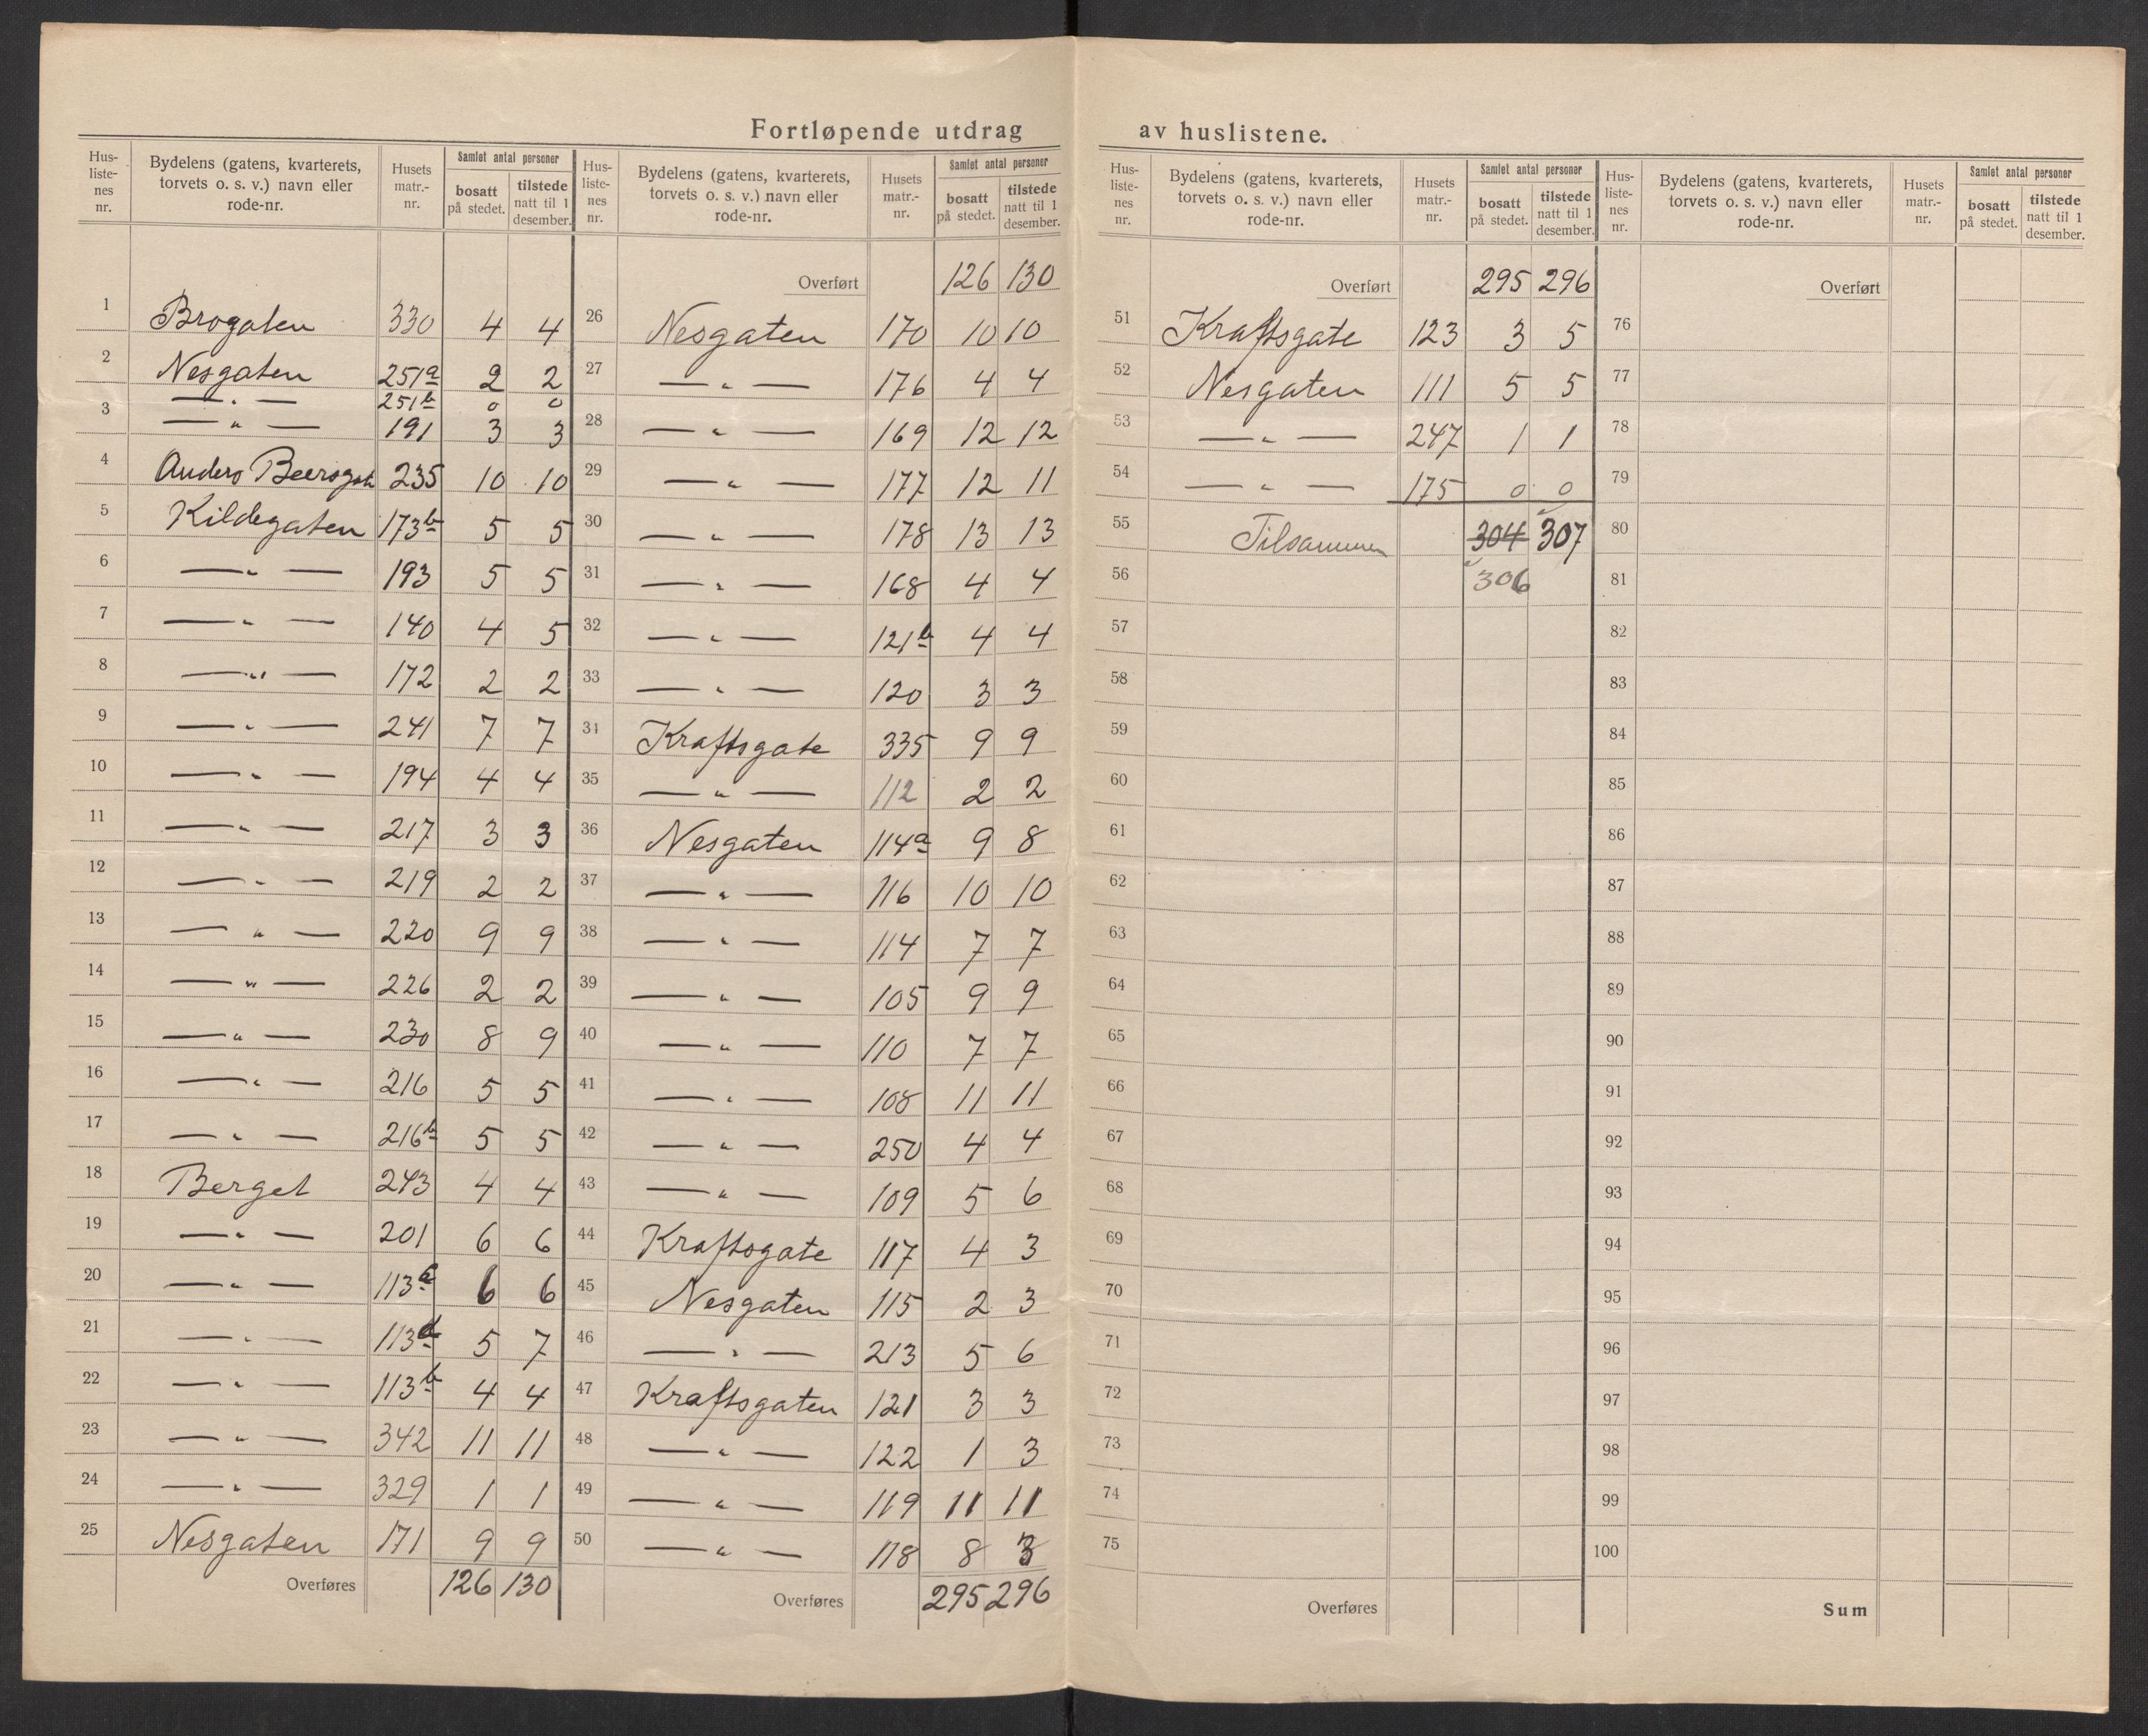 Fortløpende utdrag av huslistene.
Hus-listenes nr. | Bydelens (gatens, kvarterets, torvets o. s. v.) navn eller rode-nr. | Husets matr.-nr. | Samlet antal personer | bosatt på stedet. | tilstede natt til 1 desember.
1 Brogaten 330 4 4
2 Nesgaten 251a 2 2
— " — 251b 0 0
3 — " — 191 3 3
4 Anders Beersgate 235 10 10
5 Kildegaten 173b 5 5
6 — " — 193 5 5
7 — " — 140 4 5
8 — " — 172 2 2
9 — " — 241 7 7
10 — " — 194 4 4
11 — " — 217 3 3
12 — " — 219 2 2
13 — " — 220 9 9
14 — " — 226 2 2
15 — " — 230 8 9
16 — " — 216 5 5
17 — " — 216b 5 5
18 Berget 243 4 4
19 — " — 201 6 6
20 — " — 113 6 6
21 — " — 113d 5 7
22 — " — 113b 4 4
23 — " — 342 11 11
24 — " — 329 1 1
25 Nesgaten 171 9 9
Overføres 126 130
Hus-listenes nr. | Bydelens (gatens, kvarterets, torvets o. s. v.) navn eller rode-nr. | Husets matr.-nr. | Samlet antal personer | bosatt på stedet. | tilstede natt til 1 desember.
Overført 126 130
26 Nesgaten 170 10 10
27 — " — 176 4 4
28 — " — 169 12 12
29 — " — 177 12 11
30 — " — 178 13 13
31 — " — 168 4 4
32 — " — 121b 4 4
33 — " — 120 3 3
34 Kraftsgate 335 9 9
35 — " — 112 2 2
36 Nesgaten 114a 9 8
37 — " — 116 10 10
38 — " — 114 7 7
39 — " — 105 9 9
40 — " — 110 7 7
41 — " — 108 11 11
42 — " — 250 4 4
43 — " — 109 5 6
44 Kraftsgate 117 4 3
45 Nesgaten 115 2 3
46 — " — 213 5 6
47 Kraftsgaten 121 3 3
48 — " — 122 1 3
49 — " — 119 11 11
50 — " — 118 8 3
Overføres 295 296
Hus-listenes nr. | Bydelens (gatens, kvarterets, torvets o. s. v.) navn eller rode-nr. | Husets matr.-nr. | Samlet antal personer | bosatt på stedet. | tilstede natt til 1 desember.
Overført 295 296
51 Kraftsgate 123 3 5
52 Nesgaten 111 5 5
53 — " — 247 1 1
54 — " — 175 0 0
55 Tilsammen 304 307
56 306
57
58
59
60
61
62
63
64
65
66
67
68
69
70
71
72
73
74
75
Overføres
Hus-listenes nr. | Bydelens (gatens, kvarterets, torvets o. s. v.) navn eller rode-nr. | Husets matr.-nr. | Samlet antal personer | bosatt på stedet. | tilstede natt til 1 desember.
Overført
76
77
78
79
80
81
82
83
84
85
86
87
88
89
90
91
92
93
94
95
96
97
98
99
100
Sum